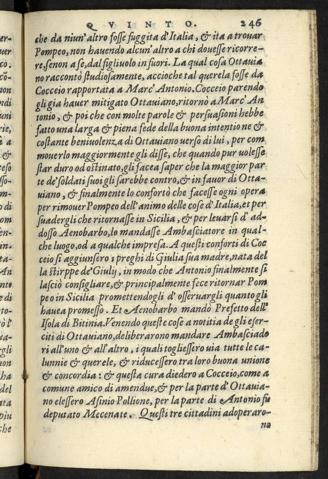 QVINTO. 246
che da niun'altro fosse fuggita d'Italia, & ita a trouar
Pompeo, non hauendo alcun'altro a chi douesse ricorre-
re, se non a se, dal figliuolo in fuori. La qual cosa Ottauia
no raccontò studiosamente, accioche tal querela fosse da
Cocceio rapportata a Marc'Antonio. Cocceio parendo
gli gia hauer mitigato Ottauiano, ritornò a Marc'An
tonio, & poi che con molte parole & persuasioni hebbe
fatto una larga & piena fede della buona intentione &
costante beniuolenza di Ottauiano uerso di lui, per com
mouerlo maggiormente gli disse, che quando pur uolesse
star duro od ostinato, gli facea saper che la maggior par
te de' soldati suoi gli sarebbe contro, & in fauor di Otta-
uiano, & finalmente lo confortò che facesse ogni opera
per rimouer Pompeo dell'animo delle cose d'Italia, et per
suadergli che ritornasse in Sicilia, & per leuarsi d'ad-
dosso Aenobarbo, lo mandasse Ambasciatore in qual-
che luogo, od a qualche impresa. A questi conforti di Coc
ceio si aggiunsero i preghi di Giulia sua madre, nata del
la stirppe de' Giulij, in modo che Antonio finalmente si
lasciò consigliare, & principalmente fece ritornar Pom
peo in Sicilia promettendogli d'osseruargli quanto gli
hauea promesso. Et Aenobarbo mandò Prefetto dell'
Isola di Bitinia. Venendo queste cose a notitia de gli eser-
citi di Ottauiano, deliberarono mandare Ambasciado
ri all'uno & all'altro, i quali togliessero uia tutte le ca-
lunnie & querele, & riducessero tra loro buona unione
& concordia: & questa cura diedero a Cocceio, come a
comune amico di amendue, & per la parte d'Ottauia-
no elessero Asinio Pollione, per la parte di Antonio fu
deputato Mecenate. Questi tre cittadini adoperaro-
na